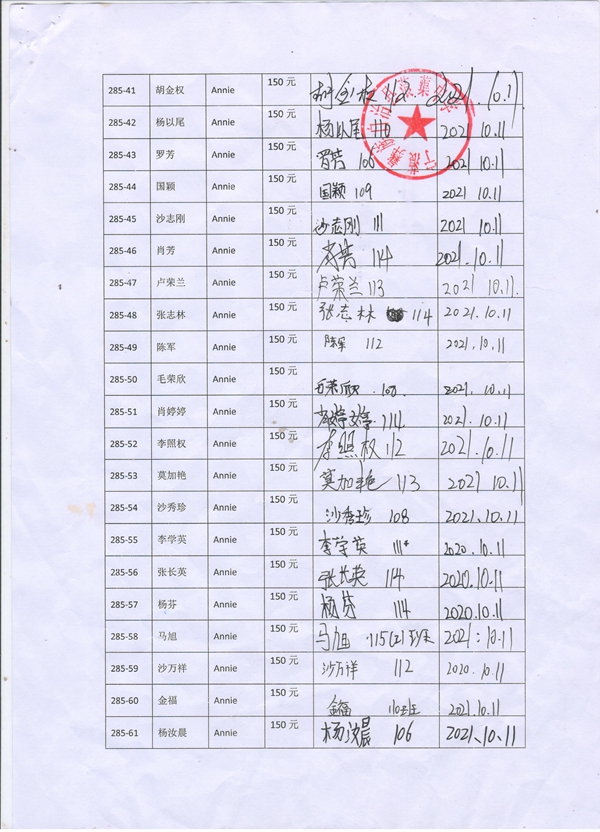 285-41 胡金权 Annie 150 元 胡金权 112 2021.10.11
285-42 杨以尾 Annie 150 元 杨以尾 110 2021 10.11
285-43 罗芳 Annie 150 元 罗芳 106 2021 10.11
285-44 国颖 Annie 150 元 国颖 109 2021 10.11
285-45 沙志刚 Annie 150 元 沙志刚 111 2021 10.11
285-46 肖芳 Annie 150 元 肖芳 114 2021.10.11
285-47 卢荣兰 Annie 150 元 卢荣兰 113 2021 10.11.
285-48 张志林 Annie 150 元 张志林 114 2021.10.11
285-49 陈军 Annie 150 元 陈军 112 2021.10.11
285-50 毛荣欣 Annie 150 元 毛荣欣 108 2021.10.11
285-51 肖婷婷 Annie 150 元 肖婷婷 114 2021.10.11
285-52 李照权 Annie 150 元 李照权 112 2021.10.11
285-53 莫加艳 Annie 150 元 莫加艳 113 2021 10.11
285-54 沙秀珍 Annie 150 元 沙秀珍 108 2021.10.11
285-55 李学英 Annie 150 元 李学英 111 2020.10.11
285-56 张长英 Annie 150 元 张长英 114 2020.10.11
285-57 杨芬 Annie 150 元 杨芬 114 2020.10.11
285-58 马旭 Annie 150 元 马旭 115(2) 2021.10.11
285-59 沙万祥 Annie 150 元 沙万祥 112 2020.10.11
285-60 金福 Annie 150 元 金福 110班 2021.10.11
285-61 杨汝晨 Annie 150 元 杨汝晨 106 2021.10.11